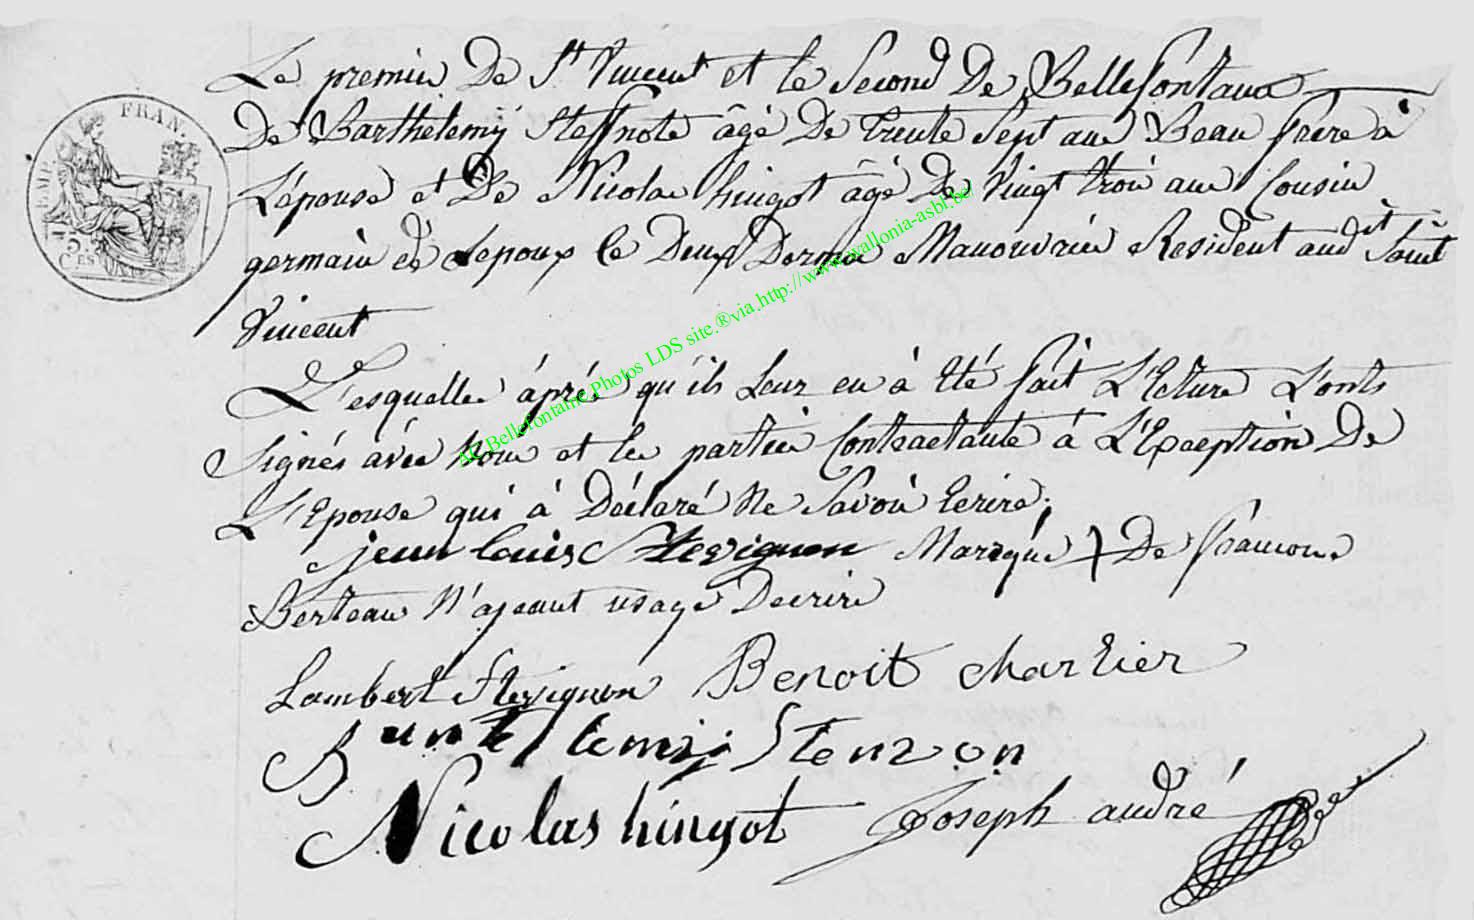 Le premier De St Vincent et le Second De Bellefontaine
De Barthélemÿ Steffnote âgé De trente Sept ans Beau frere à
L'épouse et De Nicolas hingot âgé De Vingt trois ans Cousin
germain de Lepoux les Deux Dernier Manouvrier Resident audit Saint
Vincent
L'esquelles áprés qu'ils Leur en à Eté fait L'Ecture L'onts
Signés avec Nous et les parties Contractante à L'Exception De
L'Epouse qui à Déclaré Ne Savoir Ecrire;
jean louis Stevignon Marque De francois
Berteau N'ayant usage Decrire
Lambert Stevignon Benoit charlier
Bartelemi Stenzon
Nicolas hingot Joseph andré
FRAN.
EMP.
75
CES
AC Bellefontaine Photos LDS site.®via.http://www.wallonia-asbl.be/